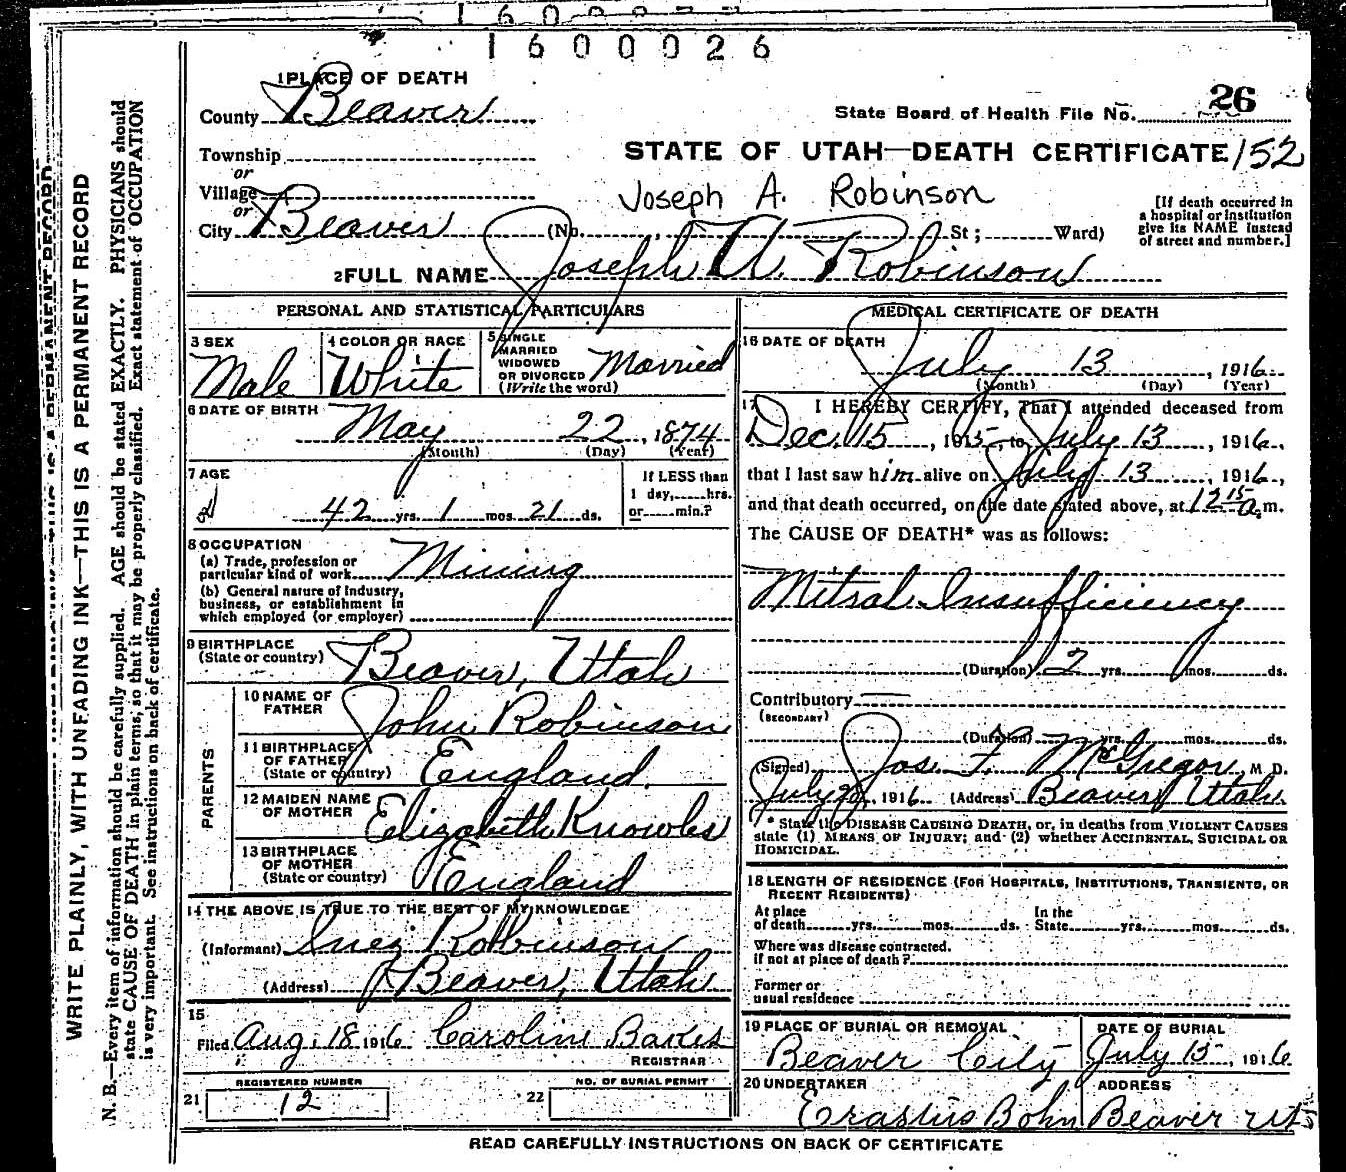 1600026
1 PLACE OF DEATH
County Beaver
State Board of Health File No. 26
Township
STATE OF UTAH—DEATH CERTIFICATE 152
or
Village
Joseph A. Robinson
or
City Beaver (No. St; Ward)
[If death occurred in
a hospital or institution
give its NAME instead
of street and number.]
2 FULL NAME Joseph A. Robinson
PERSONAL AND STATISTICAL PARTICULARS
3 SEX
Male
4 COLOR OR RACE
White
5 SINGLE
MARRIED
WIDOWED
OR DIVORCED
(Write the word)
Married
6 DATE OF BIRTH
May 22, 1874
(Month) (Day) (Year)
7 AGE
42 yrs. 1 mos. 21 ds.
If LESS than
1 day, hrs.
or min.?
8 OCCUPATION
(a) Trade, profession or
particular kind of work Mining
(b) General nature of industry,
business, or establishment in
which employed (or employer)
9 BIRTHPLACE
(State or country) Beaver, Utah
PARENTS
10 NAME OF
FATHER John Robinson
11 BIRTHPLACE
OF FATHER
(State or country) England.
12 MAIDEN NAME
OF MOTHER Elizabeth Knowles
13 BIRTHPLACE
OF MOTHER
(State or country) England
14 THE ABOVE IS TRUE TO THE BEST OF MY KNOWLEDGE
(Informant) Inez Robinson
(Address) Beaver, Utah
15
Filed Aug. 18 1916 Caroline Bakes
REGISTRAR
REGISTERED NUMBER
21 12
NO. OF BURIAL PERMIT
22
MEDICAL CERTIFICATE OF DEATH
16 DATE OF DEATH
July 13, 1916
(Month) (Day) (Year)
17 I HEREBY CERTIFY, That I attended deceased from
Dec. 15, 1915, to July 13, 1916,
that I last saw him alive on July 13, 1916,
and that death occurred, on the date stated above, at 12 15 a.m.
The CAUSE OF DEATH* was as follows:
Mitral Insufficiency
(Duration) 2 yrs. mos. ds.
Contributory
(SECONDARY)
(Duration) yrs. mos. ds.
(Signed) Jos. F. McGregor, M D.
July 20, 1916 (Address) Beaver Utah.
* State the DISEASE CAUSING DEATH, or, in deaths from VIOLENT CAUSES
state (1) MEANS OF INJURY; and (2) whether ACCIDENTAL, SUICIDAL OR
HOMICIDAL.
18 LENGTH OF RESIDENCE (FOR HOSPITALS, INSTITUTIONS, TRANSIENTS, OR
RECENT RESIDENTS)
At place
of death yrs. mos. ds.
In the
State yrs. mos. ds.
Where was disease contracted.
if not at place of death?
Former or
usual residence
19 PLACE OF BURIAL OR REMOVAL
Beaver City
DATE OF BURIAL
July 15, 1916
20 UNDERTAKER
Erastus Bohn
ADDRESS
Beaver Ut
READ CAREFULLY INSTRUCTIONS ON BACK OF CERTIFICATE
WRITE PLAINLY, WITH UNFADING INK—THIS IS A PERMANENT RECORD
N. B.—Every item of information should be carefully supplied. AGE should be stated EXACTLY. PHYSICIANS should
state CAUSE OF DEATH in plain terms, so that it may be properly classified. Exact statement of OCCUPATION
is very important. See instructions on back of certificate.